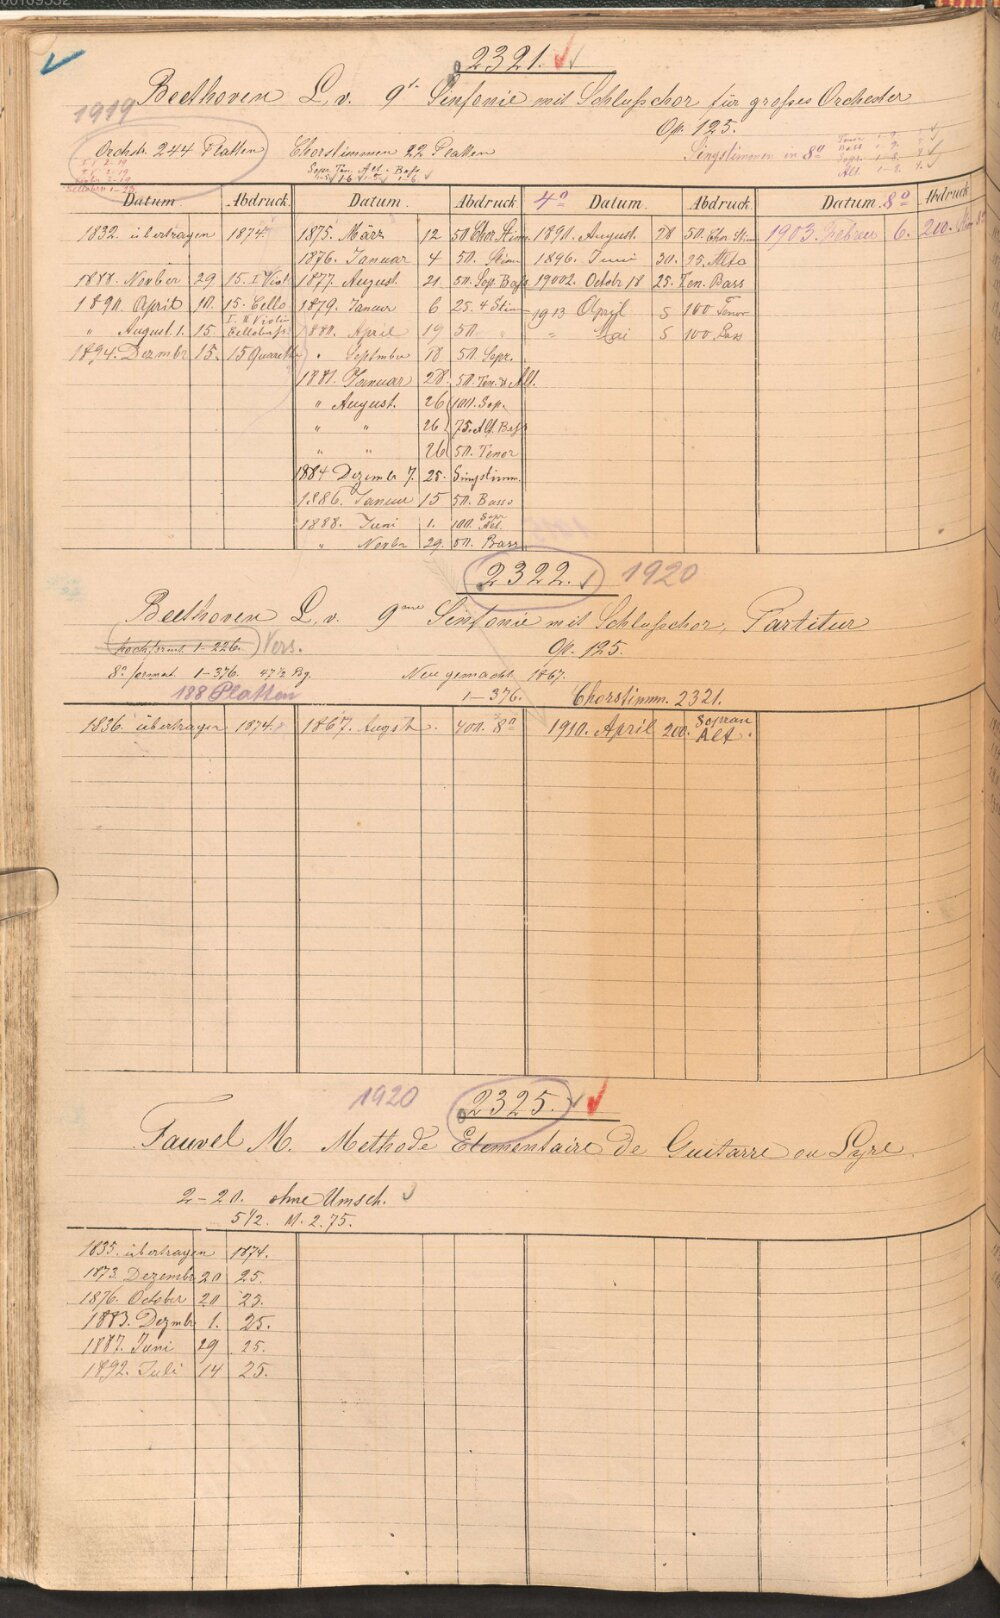 2321.
1919
Beethoven L. v. 9te Sinfonie mit Schlußchor für großes Orchester
Op. 125.
Orchstr. 244 Platten Chorstimmen 22 Platten Singstimmen in 8º
Sopr. Ten. Alt. Bass
Tenor 1-9.
Bass 1-9.
Sopr. 1-8.
Alt. 1-8.
Datum Abdruck Datum. Abdruck 4º Datum. Abdruck Datum. 8º Abdruck
1832. übertragen 1874. 1875. März 12 50 Chor Stim. 1890. August. 28 50. Chor Stim 1903. Februar 6. 200.
1876. Januar 4 50. Stim 1896. Juni 30. 25. Alto
1888. Novber 29 15. I Viol. 1877. August. 21 50. Sop. Bass 1902. Octobr 18 25. Ten. Bass
1890. April 10. 15. Cello 1879. Januar 6 25. 4 Stim 1913 April 5 100 Tenor
" August. 15 I. II Violin Cellobass 1880. April 19 50 " " Mai 5 100 Bass
1894. Dezmbr 15. 15 Quartett " September 18 50. Sopr.
1881. Januar 28. 50. Ten. & Alt.
" August. 26 100. Sop.
" " 26 75. Alt. Bass
" " 26 50. Tenor
1884. Dezembr 7. 25. Singstimm.
1886. Januar 15 50. Basso
1888. Juni 1. 100. Sopr. Alt.
" Novbr 29. 50. Bass
2322. 1920
Beethoven L. v. 9me Sinfonie mit Schlußchor, Partitur
hochformt 1-226. Vers. Op. 125.
8º format 1-376. 47½ Bg. Neu gemacht 1867.
188 Platten 1-376. Chorstimm. 2321.
1836. übertragen 1874. 1867. Augst. 400. 8º 1910. April 200. Sopran Alt.
1920 2325.
Fauvel M. Methode Elementaire de Guitarre ou Lyre.
2-20. ohne Umsch.
5½. M. 2.75.
1835. übertragen 1874.
1873. Dezembr 20 25.
1876. October 20 23.
1883. Dezmbr 1. 25.
1887. Juni 29 25.
1892. Juli 14 25.